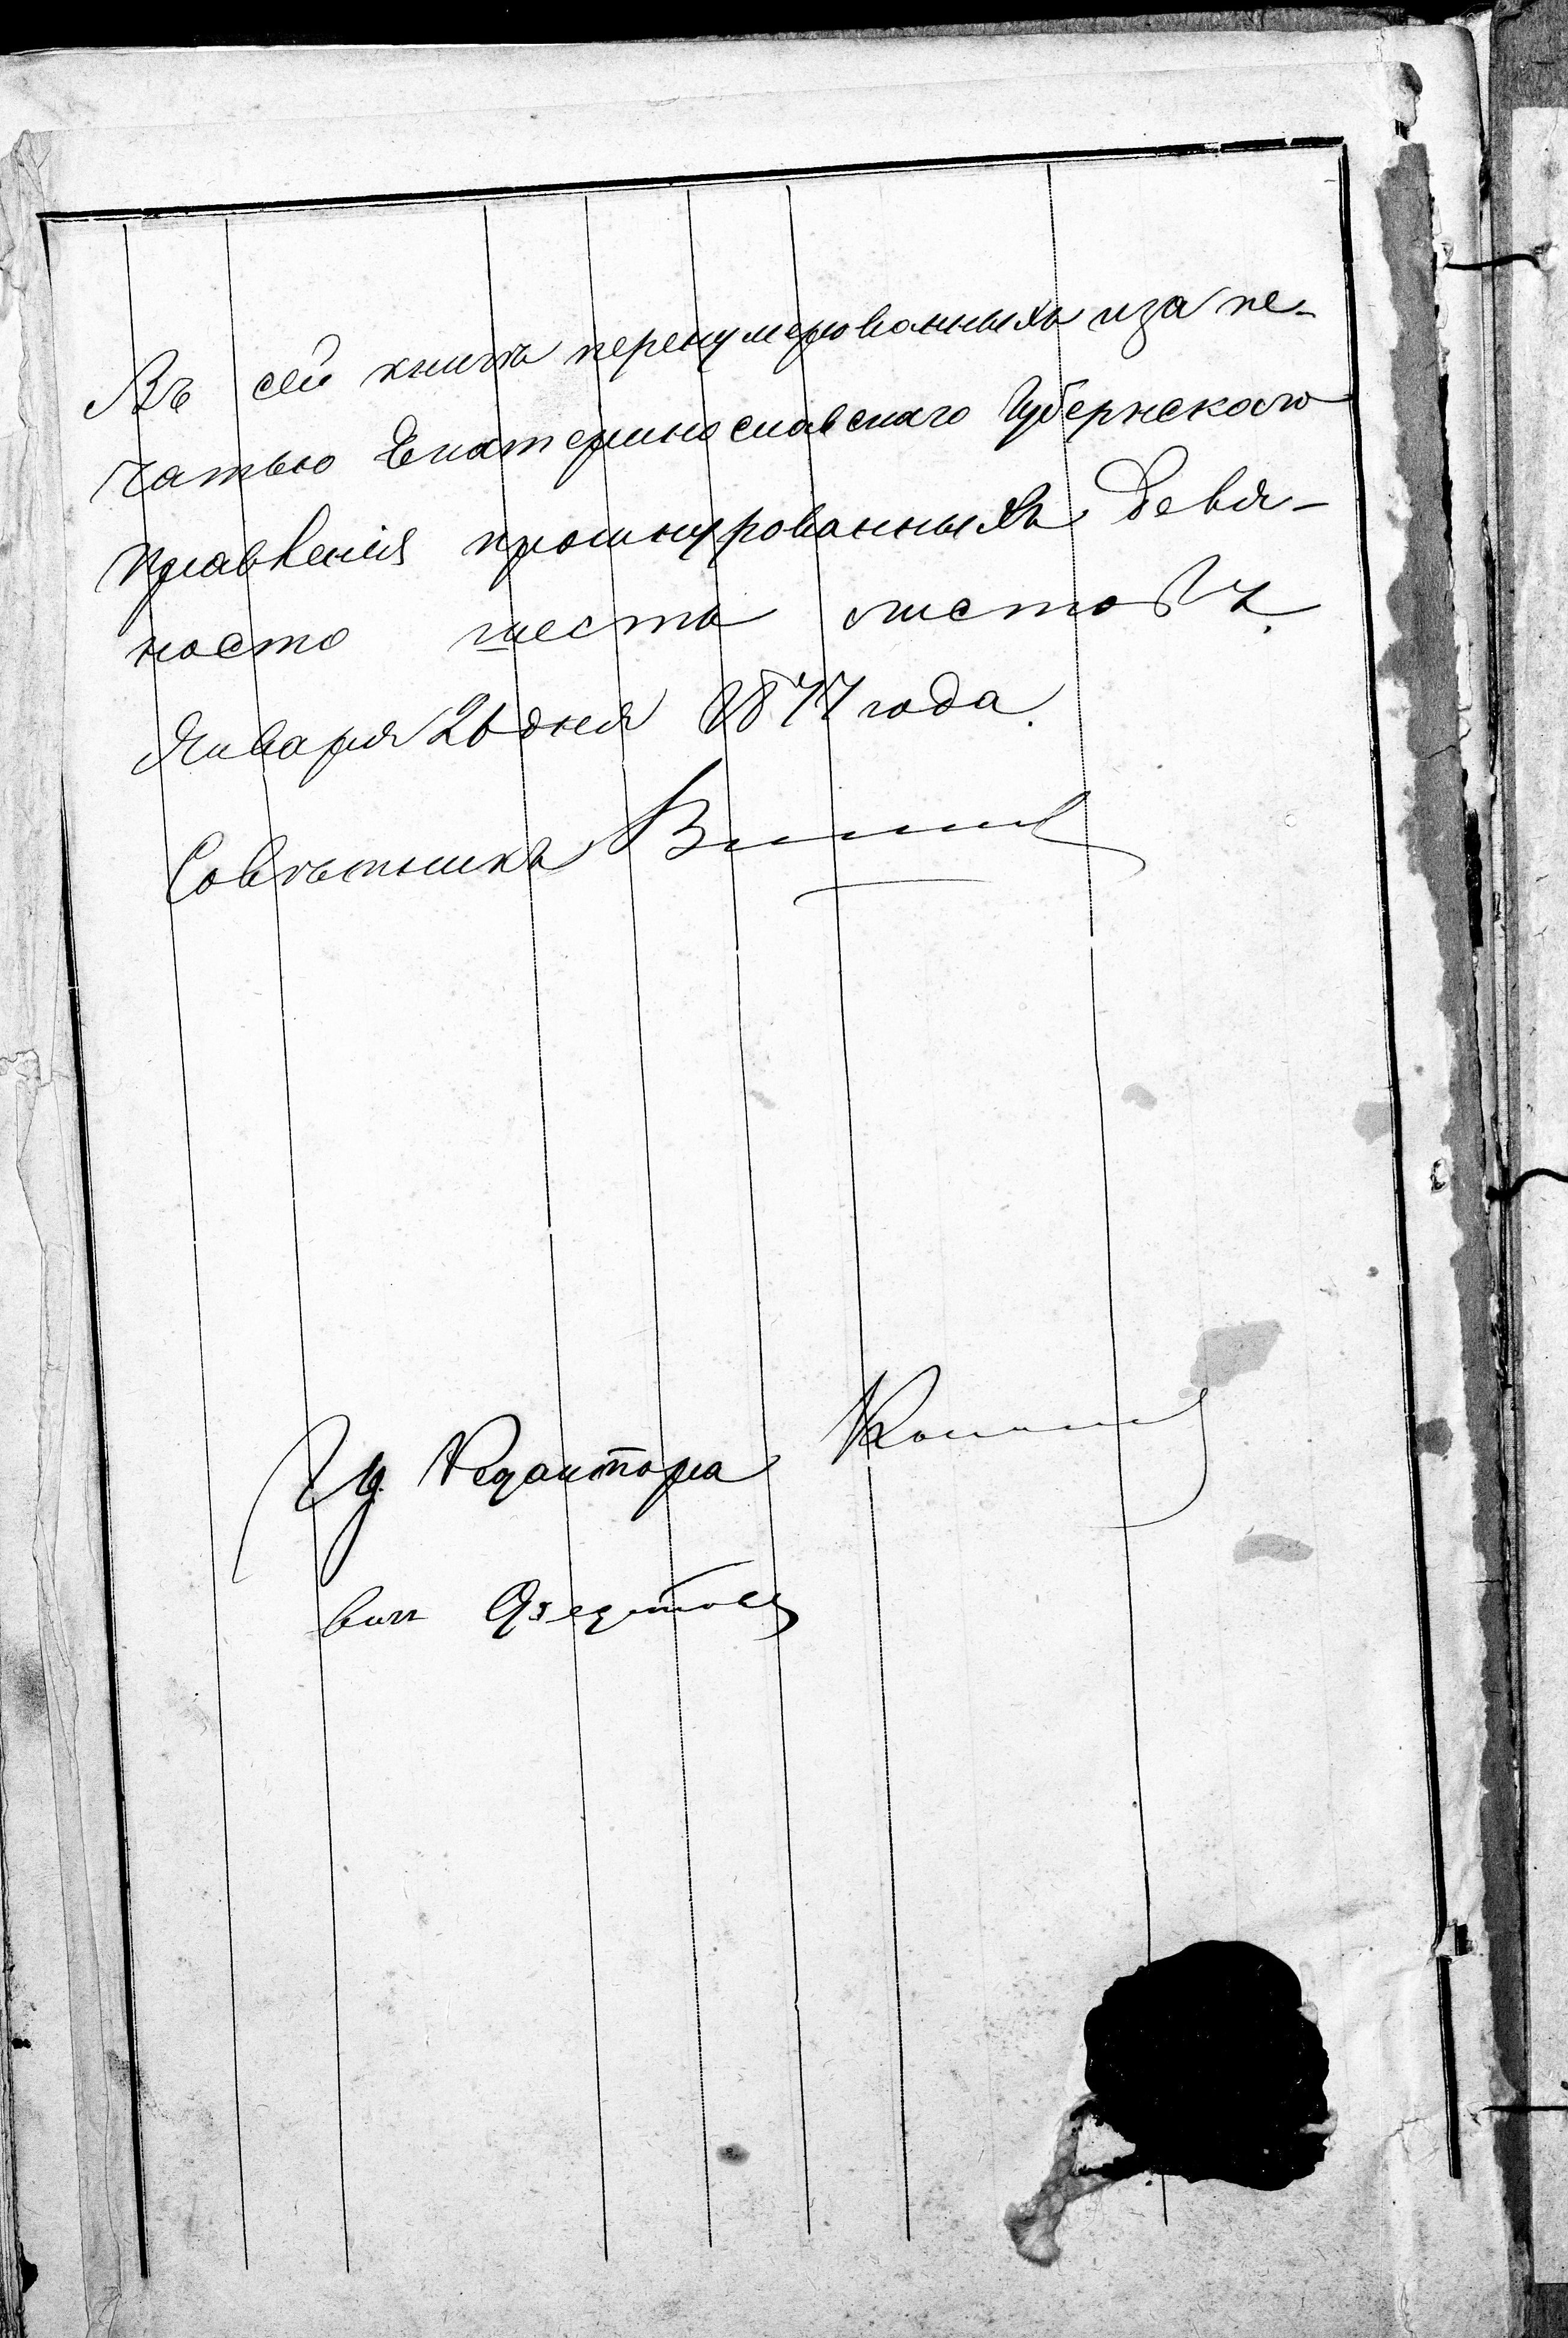 Въ сей книгѣ перенумерованныхъ и за пе-
чатью Екатеринославскаго Губернскаго
Правленія прошнурованныхъ девя-
носто шесть листовъ.
Января 26 дня 1877 года.
Совѣтникъ
Редактора